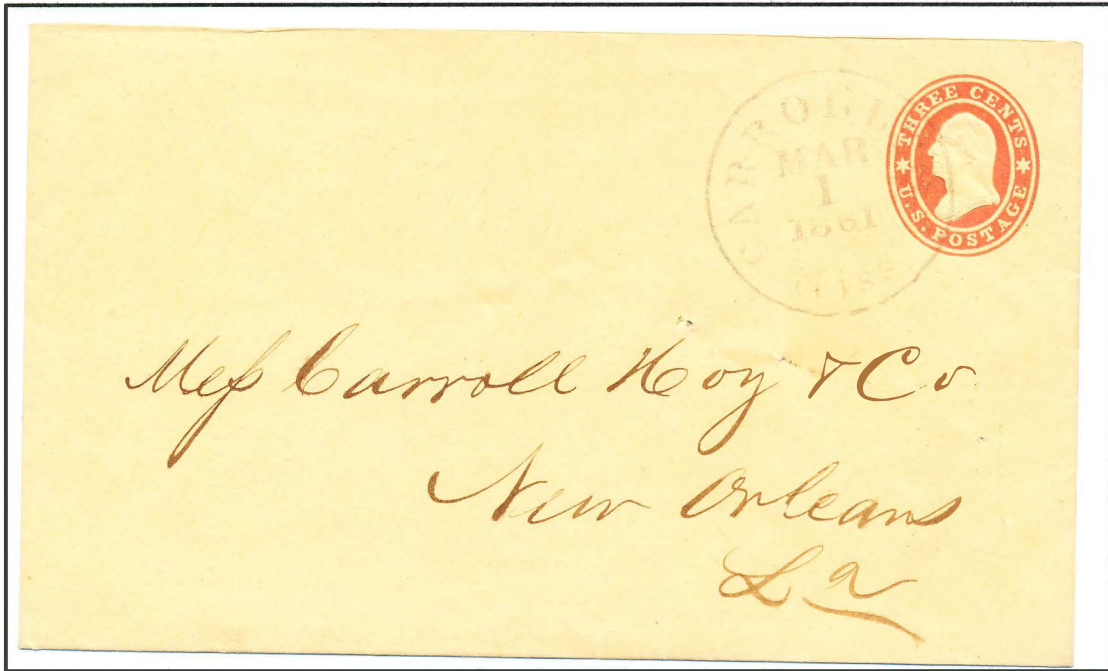 CARROLL
MAR
1
1861
Miss
THREE CENTS
U.S. POSTAGE
Mess Carroll Hoy & Co
New Orleans
La